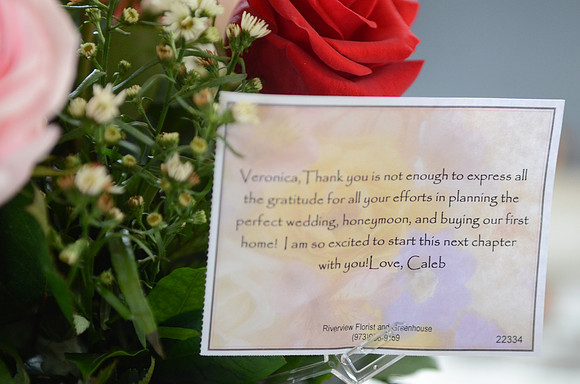 Veronica, Thank you is not enough to express all
the gratitude for all your efforts in planning the
perfect wedding, honeymoon, and buying our first
home! I am so excited to start this next chapter
with you!Love, Caleb
Riverview Florist and Greenhouse
22334